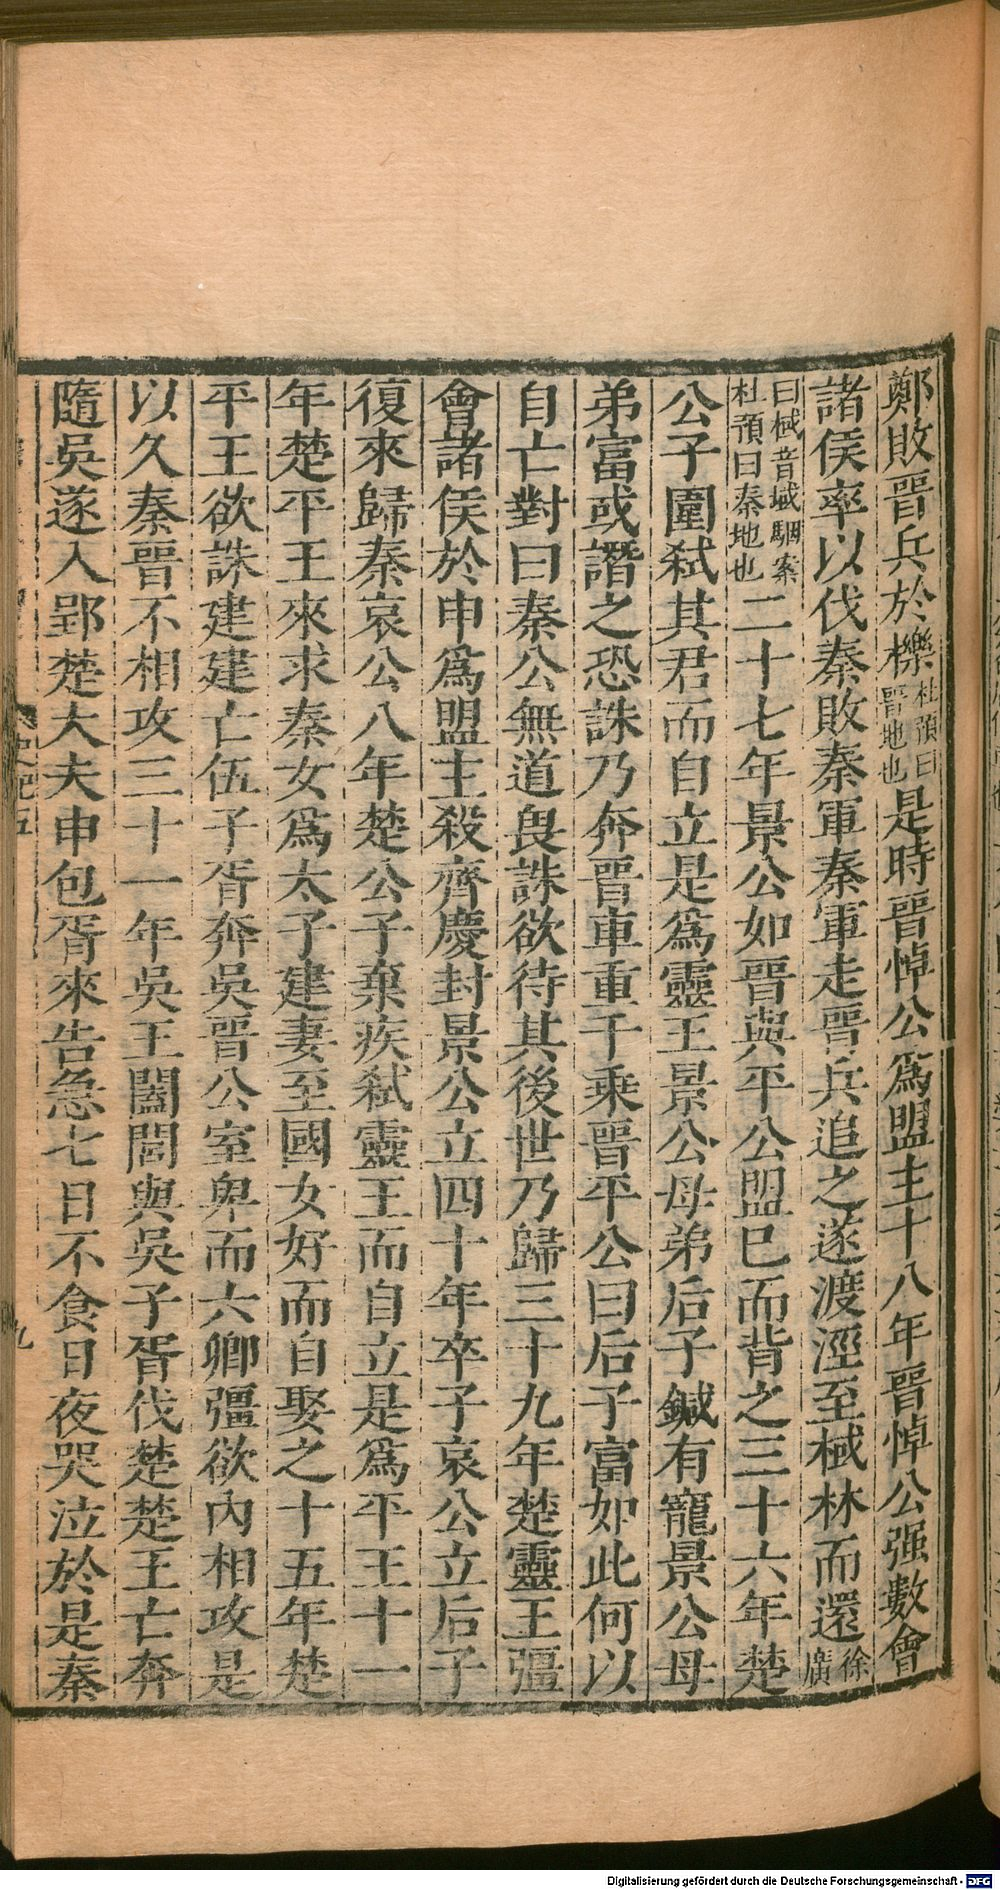 鄭敗晉兵於櫟杜預曰晉地也是時晉悼公爲盟主十八年晉悼公强數會
諸侯率以伐秦敗秦軍秦軍走晉兵追之遂渡涇至棫林而還徐廣
曰棫音域駰案杜預曰秦地也二十七年景公如晉與平公盟巳而背之三十六年楚
公子圍弑其君而自立是爲靈王景公母弟后子鍼有寵景公母
弟富或譖之恐誅乃奔晉車重千乗晉平公曰后子富如此何以
自亡對曰秦公無道畏誅欲待其後世乃歸三十九年楚靈王彊
會諸侯於申爲盟主殺齊慶封景公立四十年卒子哀公立后子
復來歸秦哀公八年楚公子棄疾弑靈王而自立是爲平王十一
年楚平王來求秦女爲太子建妻至國女好而自娶之十五年楚
平王欲誅建建亡伍子胥奔吳晉公室卑而六卿彊欲內相攻是
以久秦晉不相攻三十一年吳王闔閭與吳子胥伐楚楚王亡奔
隨吳遂入郢楚大夫申包胥來告急七日不食日夜哭泣於是秦
史記五
九
Digitalisierung gefördert durch die Deutsche Forschungsgemeinschaft - DFG